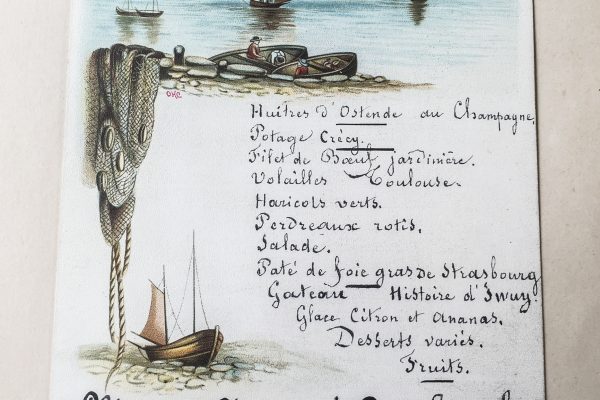 Huîtres d'Ostende au Champagne.
Potage Crécy.
Filet de Bœuf jardinière.
Volailles Toulouse.
Haricots verts.
Perdreaux rotis.
Salade.
Paté de foie gras de Strasbourg
Gateau Histoire d'Iwuy.
Glace Citron et Ananas.
Desserts variés.
Fruits.